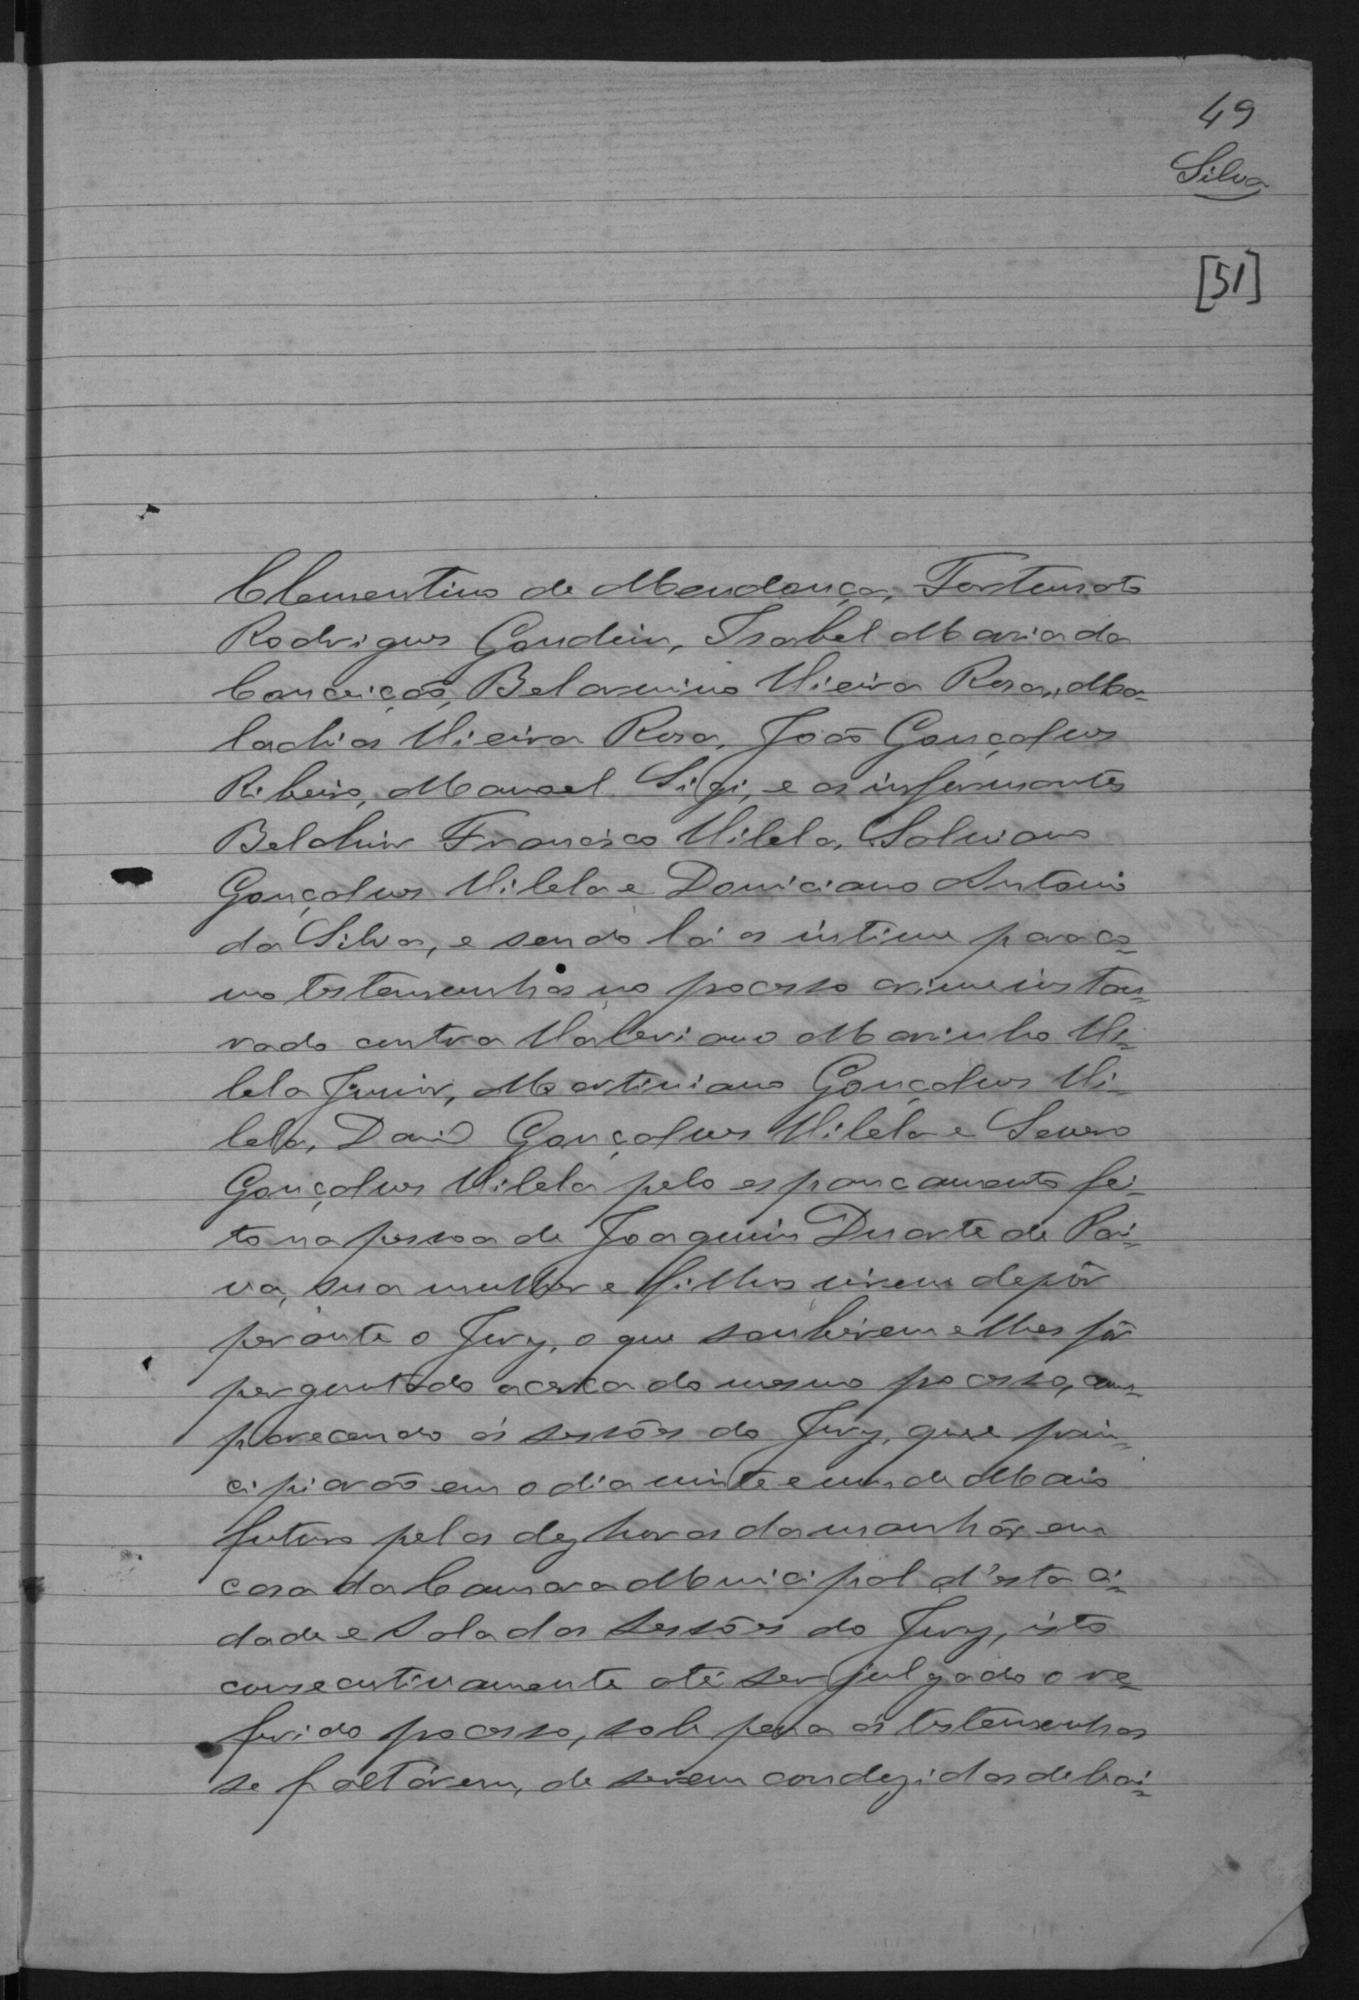 49
Silva
[51]
Clementino de Mendonça, Fortunato
Rodrigues Gondim, Isabel Maria da
Conceição, Belarmino Vieira Rosa, Ma=
lachias Vieira Rosa, João Gonçalves
Ribeiro, Manoel Gigi, e os informantes
Belchior Francisco Vilela, Salviano
Gonçalves Vilela e Domiciano Antonio
da Silva, e sendo lá os intime para co=
mo testemunhas no pocesso crime instau=
rado contra Valeriano Marinho Vi=
lela Junior, Martiniano Gonçalves Vi=
lela, David Gonçalves Vilela e Severo
Gonçalves Vilela pelo espancamento fei=
to na pessoa de Joaquim Duarte de Pai=
va, sua mulher e filhos virem depôr
perante o Jury, o que soubérem e lhes fôr
perguntado acerca do mesmo pocesso, com=
parecendo ás sessões do Jury, que prin=
cipiarão em o dia vinte e um de Maio
futuro pelas dez horas da manhã, em
casa da Camara Municipal d'esta ci=
dade e sala das sessões do Jury, isto
consecutivamente até ser julgado o re=
ferido pocesso, sob pena ás testemunhas
se faltárem, de serem conduzidas debai=